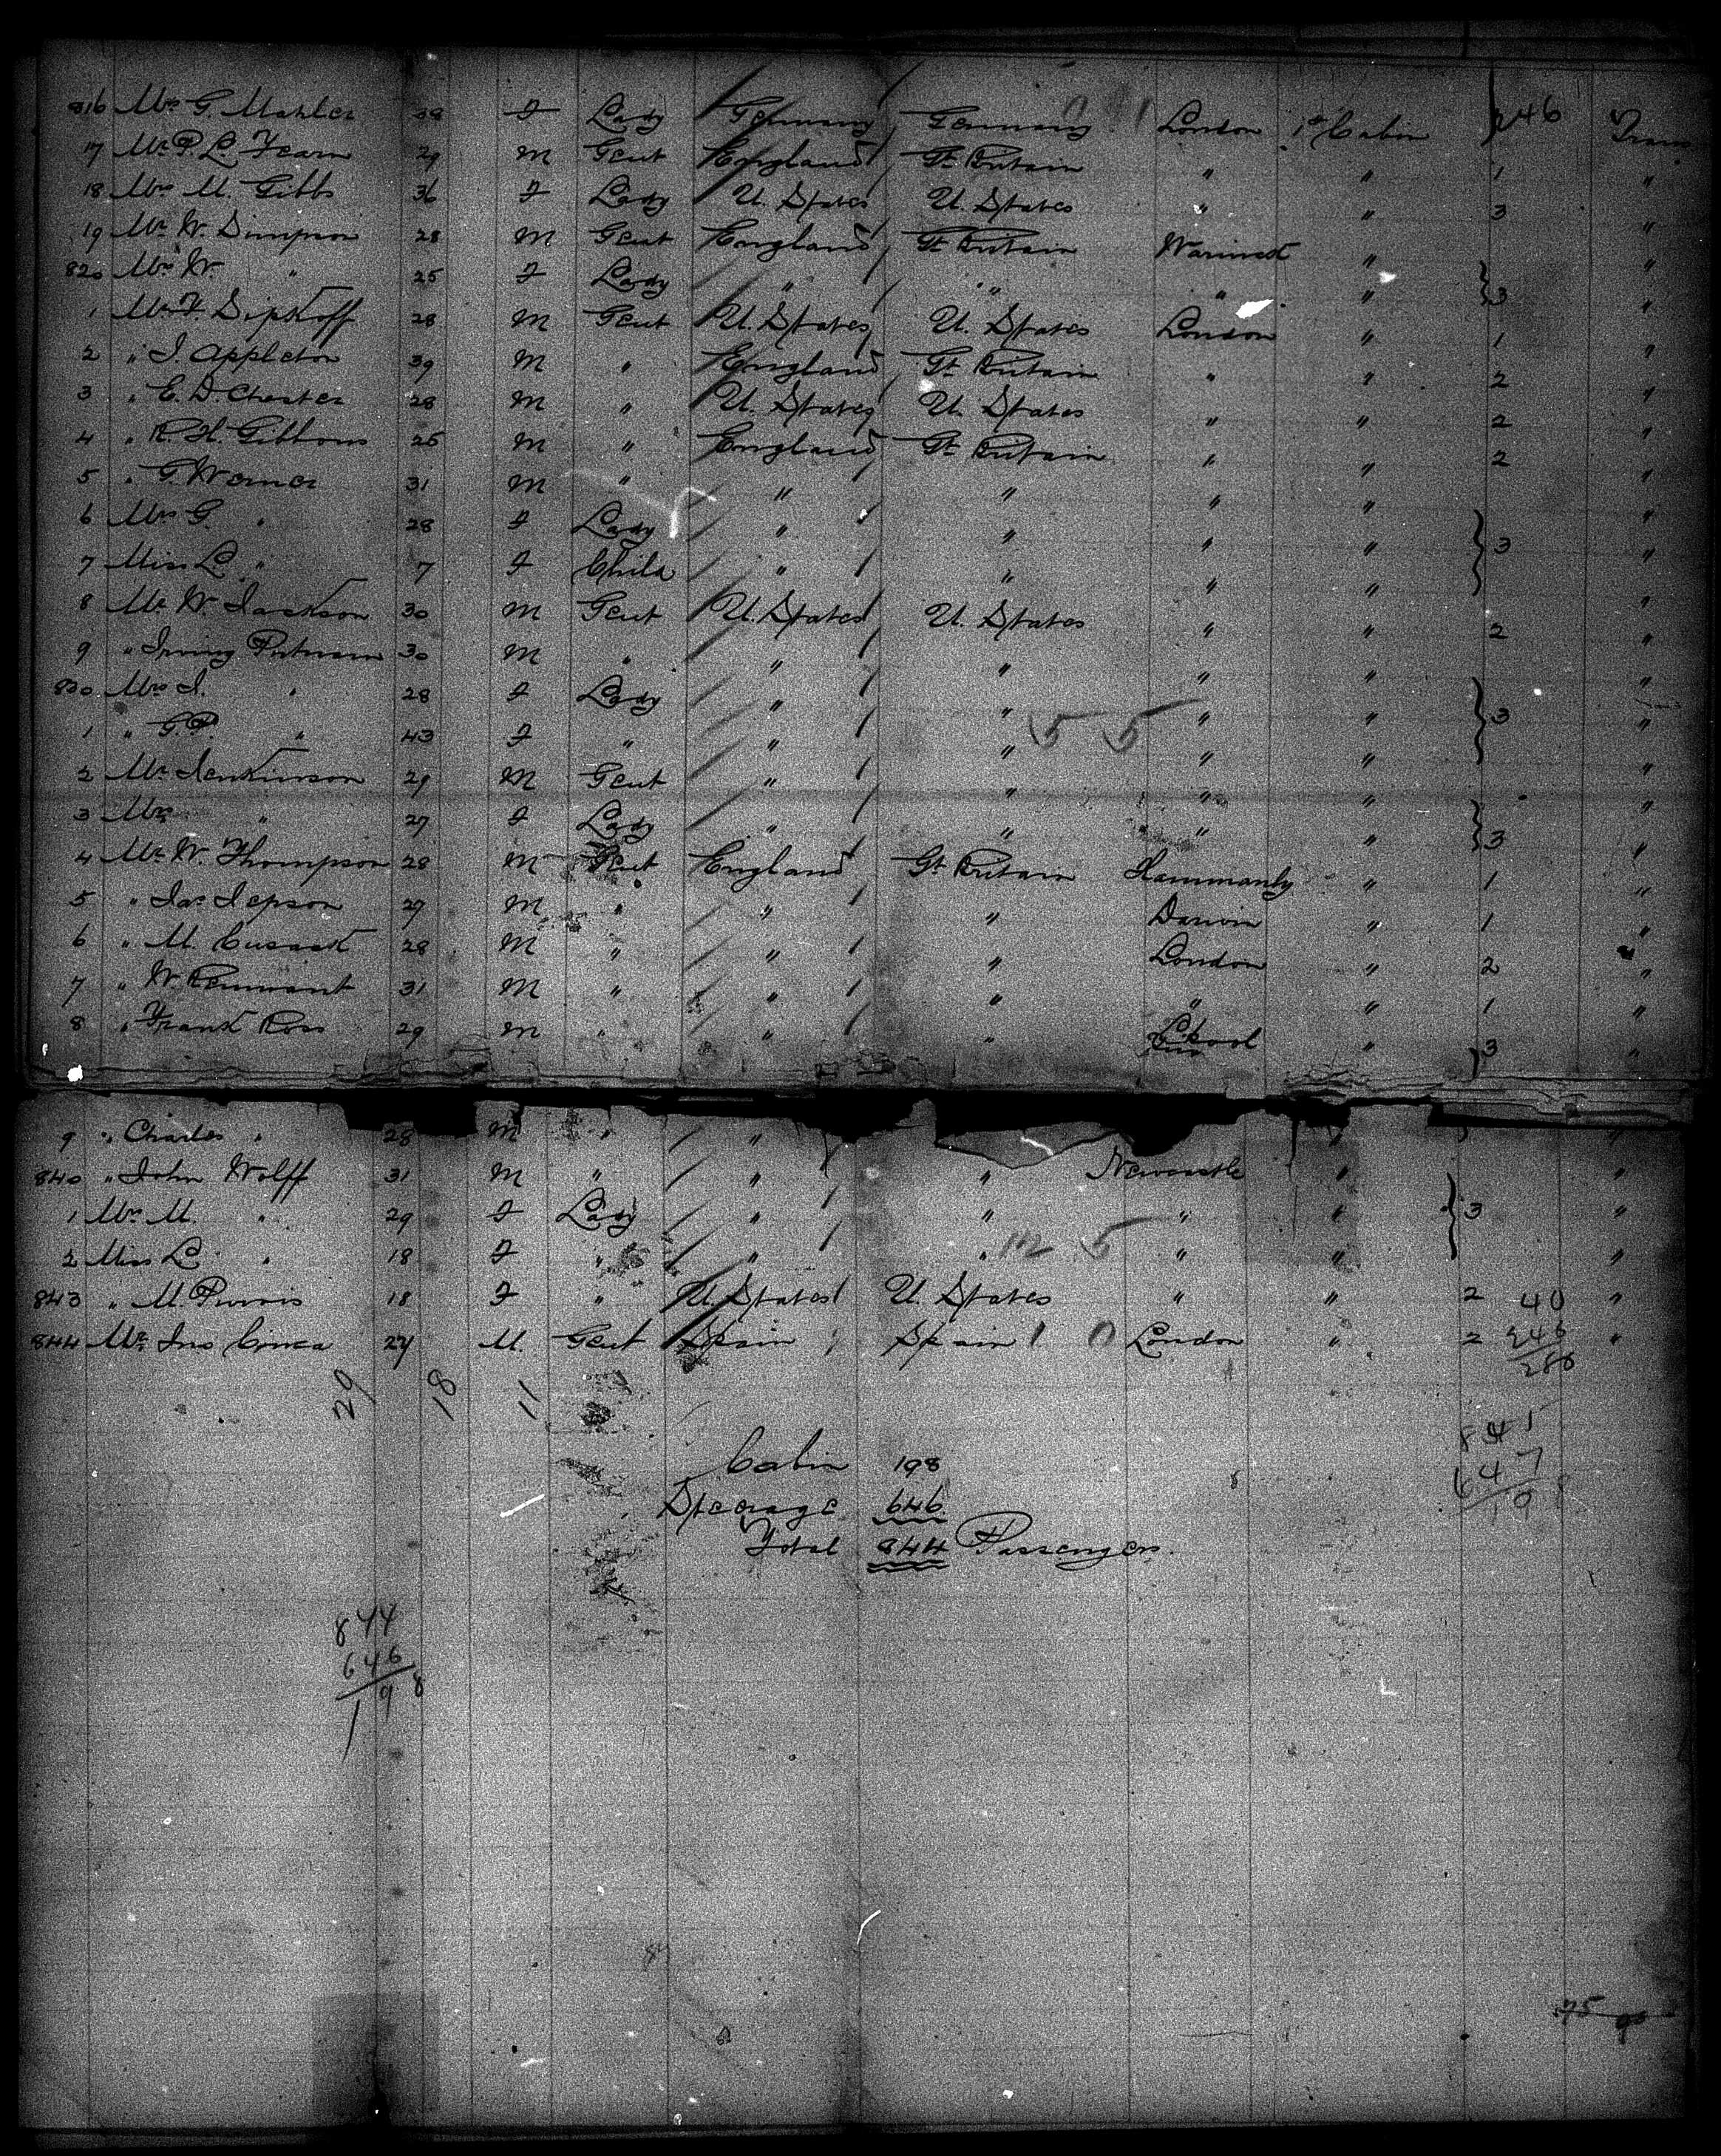 816 Mrs G. Mahler 38 F Lady Germany Germany London 1st Cabin 246 Trans
17 Mr P. L. Fearn 29 M Gent England Gt Britain " " 1 "
18 Mrs M. Gibbs 36 F Lady U. States U. States " " 3 "
19 Mr W. Simpson 28 M Gent England Gt Britain Warwick " "
820 Mrs W. " 25 F Lady " " " " 3 "
1 Mr F. 28 M Gent U. States U. States London " 1 "
2 " I. Appleton 39 M " England Gt Britain " " 2 "
3 " E. D. Chester 28 M " U. States U. States " " 2 "
4 " R. H. Gibbons 25 M " England Gt Britain " " 2 "
5 " G. Werner 31 M " " " " " "
6 Mrs G. " 28 F Lady " " " " 3 "
7 Miss L. " 7 F Child " " " " "
8 Mr W. Jackson 30 M Gent U. States U. States " " 2 "
9 " Irving Putnam 30 M " " " " " "
830 Mrs I. " 28 F Lady " " " " 3 "
1 " G. P. " 43 F " " " 5 5 " " "
2 Mr Jenkinson 29 M Gent " " " " "
3 Mrs " 27 F Lady " " " " 3 "
4 Mr W. Thompson 28 M Gent England Gt Britain Hammanby " 1 "
5 " Jas Jepson 27 M " " " Darwin " 1 "
6 " M. Cusack 28 M " " " London " 2 "
7 " W. Remnant 31 M " " " " " 1 "
8 " Frank Ross 29 M " " " L'pool " 3 "
9 " Charles " 28 M " " " "
840 " John Wolff 31 M " " " Newcastle " "
1 Mrs M. " 29 F Lady " " " " 3 "
2 Miss L. " 18 F " " " 5 " " "
843 " M. Purvis 18 F " U. States U. States " " 2 40 "
844 Mr Jno 27 M. Gent Spain Spain 0 London " 2 246 "
286
29 18 11
841
647
198
Cabin 198
Steerage 646
Total 844 Passengers.
844
646
198
75 90